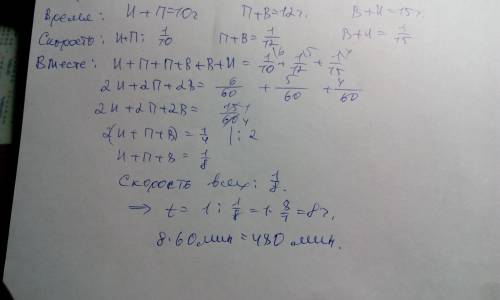 Время: И + П = 10ч П+В = 12ч. В+И = 15ч.
Скорость: И+П: 1/10 П+В = 1/12 В+И = 1/15
Вместе: И + П + П + В + В + И = 1/10 6 + 1/12 5 + 1/15 4
2И + 2П + 2В = 6/60 + 5/60 + 4/60
2И + 2П + 2В = 15/60 1 4
2(И + П + В) = 1/4 | : 2
И + П + В = 1/8
Скорость всех: 1/8.
⇒ t = 1 : 1/8 = 1 · 8/1 = 8ч.
8·60 мин = 480 мин.